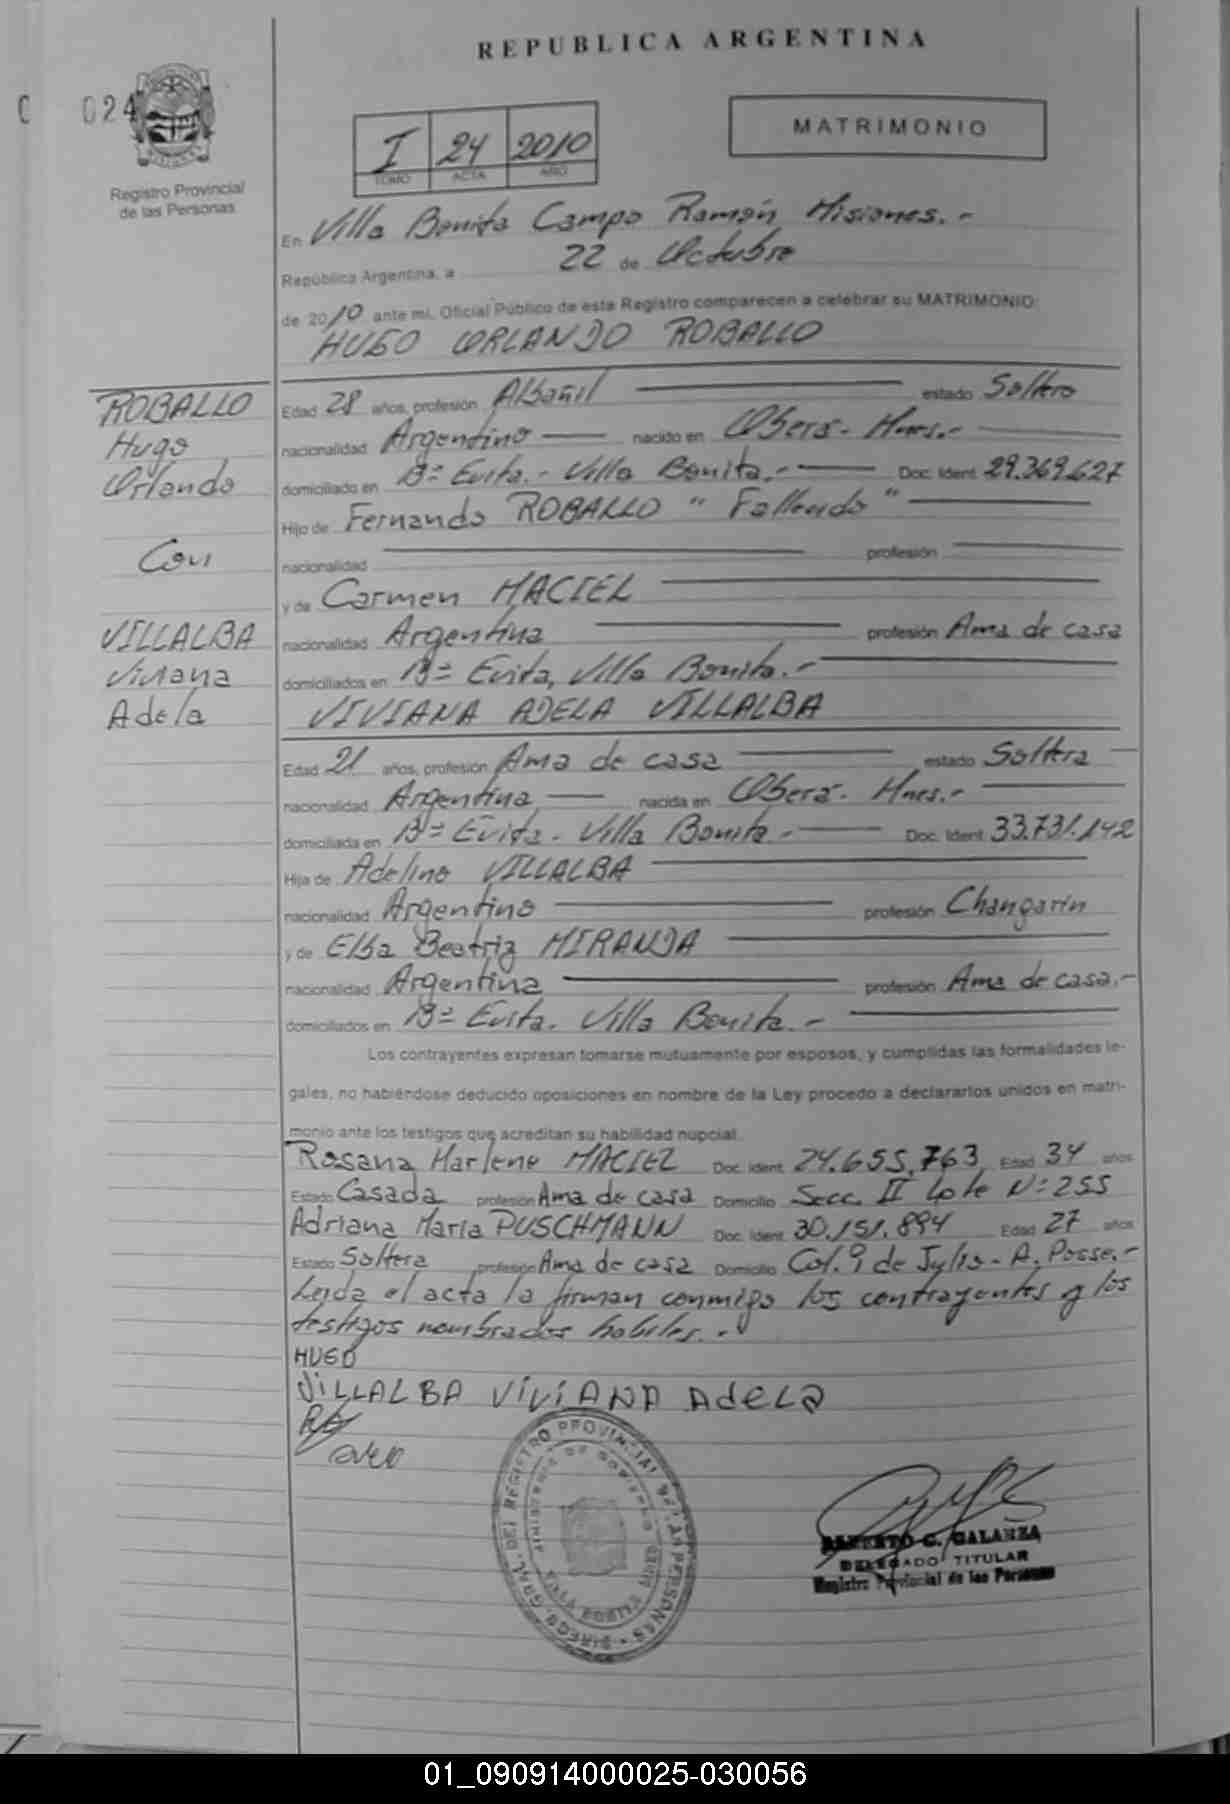 REPUBLICA ARGENTINA
024
MATRIMONIO
I 24 2010
TOMO ACTA AÑO
Registro Provincial
de las Personas
En Villa Bonita Campo Ramón Misiones.-
República Argentina, a 22 de Octubre
de 2010 ante mi, Oficial Público de este Registro comparecen a celebrar su MATRIMONIO:
HUGO ORLANDO ROBALLO
ROBALLO
Hugo
Orlando
Con
VILLALBA
Viviana
Adela
Edad 28 años, profesión Albañil estado Soltero
nacionalidad Argentino nacido en Oberá - Mnes.-
domiciliado en Bº Evita.- Villa Bonita.- Doc. Ident. 29.369.627
Hijo de Fernando ROBALLO " Fallecido "
nacionalidad profesión
y de Carmen MACIEL
nacionalidad Argentina profesión Ama de casa
domiciliados en Bº Evita, Villa Bonita.-
VIVIANA ADELA VILLALBA
Edad 21 años, profesión Ama de casa estado Soltera
nacionalidad Argentina nacida en Oberá - Mnes.-
domiciliada en Bº Evita - Villa Bonita - Doc. Ident. 33.731.142
Hija de Adelino VILLALBA
nacionalidad Argentino profesión Changarín
y de Elba Beatriz MIRANDA
nacionalidad Argentina profesión Ama de casa.-
domiciliados en Bº Evita. Villa Bonita.-
Los contrayentes expresan tomarse mutuamente por esposos, y cumplidas las formalidades le-
gales, no habiéndose deducido oposiciones en nombre de la Ley procedo a declararlos unidos en matri-
monio ante los testigos que acreditan su habilidad nupcial.
Rosana Marlene MACIEL Doc. Ident. 24.655.763 Edad 34 años
Estado Casada profesión Ama de casa Domicilio Secc. II Lote Nº 255
Adriana María PUSCHMANN Doc. Ident. 30.151.894 Edad 27 años
Estado Soltera profesión Ama de casa Domicilio Col. 9 de Julio - A. Posse.-
Leída el acta la firman conmigo los contrayentes y los
testigos nombrados habiles.-
HUGO
VILLALBA VIVIANA AdeLa
DIREC. GRAL. DEL REGISTRO PROVINCIAL DE LAS PERSONAS
MINISTERIO DE GOBIERNO
VILLA BONITA
G. GALARZA
DELEGADO TITULAR
Registro Provincial de las Personas
01_090914000025-030056